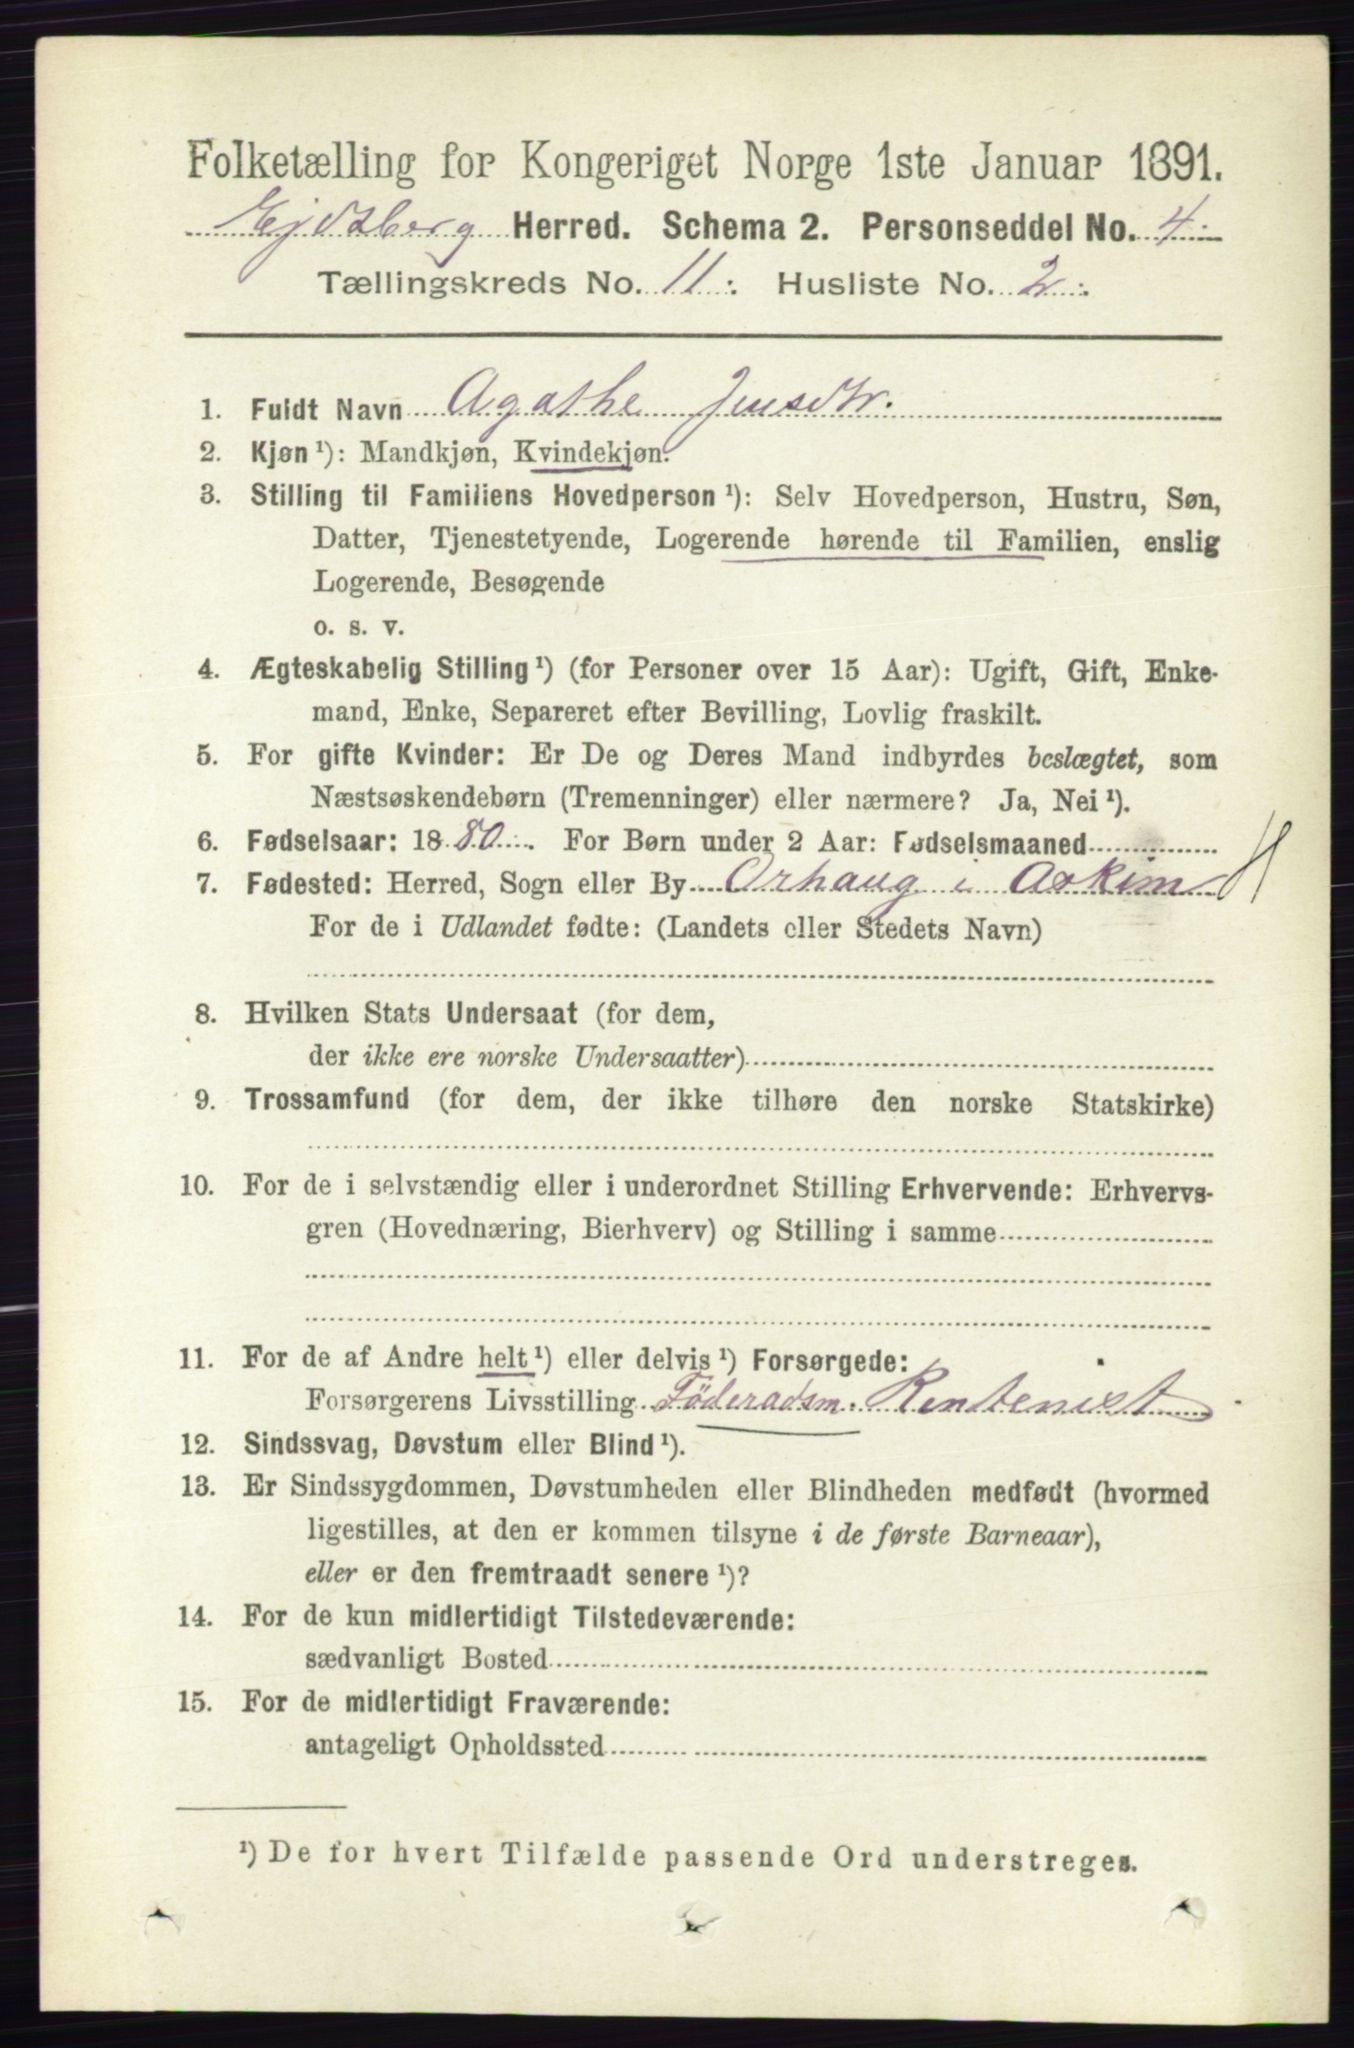 Folketælling for Kongeriget Norge 1ste Januar 1891.
Ejdsberg Herred. Schema 2. Personseddel No. 4
Tællingskreds No. 11. Husliste No. 2.
1. Fuldt Navn Agathe Jensdtr.
2. Kjøn ¹): Mandkjøn, Kvindekjøn.
3. Stilling til Familiens Hovedperson ¹): Selv Hovedperson, Hustru, Søn,
Datter, Tjenestetyende, Logerende hørende til Familien, enslig
Logerende, Besøgende
o. s. v.
4. Ægteskabelig Stilling ¹) (for Personer over 15 Aar): Ugift, Gift, Enke-
mand, Enke, Separeret efter Bevilling, Lovlig fraskilt.
5. For gifte Kvinder: Er De og Deres Mand indbyrdes beslægtet, som
Næstsøskendebørn (Tremenninger) eller nærmere? Ja, Nei ¹).
6. Fødselsaar: 1880. For Børn under 2 Aar: Fødselsmaaned
7. Fødested: Herred, Sogn eller By Orhaug i Askim H
For de i Udlandet fødte: (Landets eller Stedets Navn)
8. Hvilken Stats Undersaat (for dem,
der ikke ere norske Undersaatter)
9. Trossamfund (for dem, der ikke tilhøre den norske Statskirke)
10. For de i selvstændig eller i underordnet Stilling Erhvervende: Erhvervs-
gren (Hovednæring, Bierhverv) og Stilling i samme
11. For de af Andre helt ¹) eller delvis ¹) Forsørgede:
Forsørgerens Livsstilling Föderadsm. Rentenist
12. Sindssvag, Døvstum eller Blind ¹).
13. Er Sindssygdommen, Døvstumheden eller Blindheden medfødt (hvormed
ligestilles, at den er kommen tilsyne i de første Barneaar),
eller er den fremtraadt senere ¹)?
14. For de kun midlertidigt Tilstedeværende:
sædvanligt Bosted
15. For de midlertidigt Fraværende:
antageligt Opholdssted
¹) De for hvert Tilfælde passende Ord understreges.